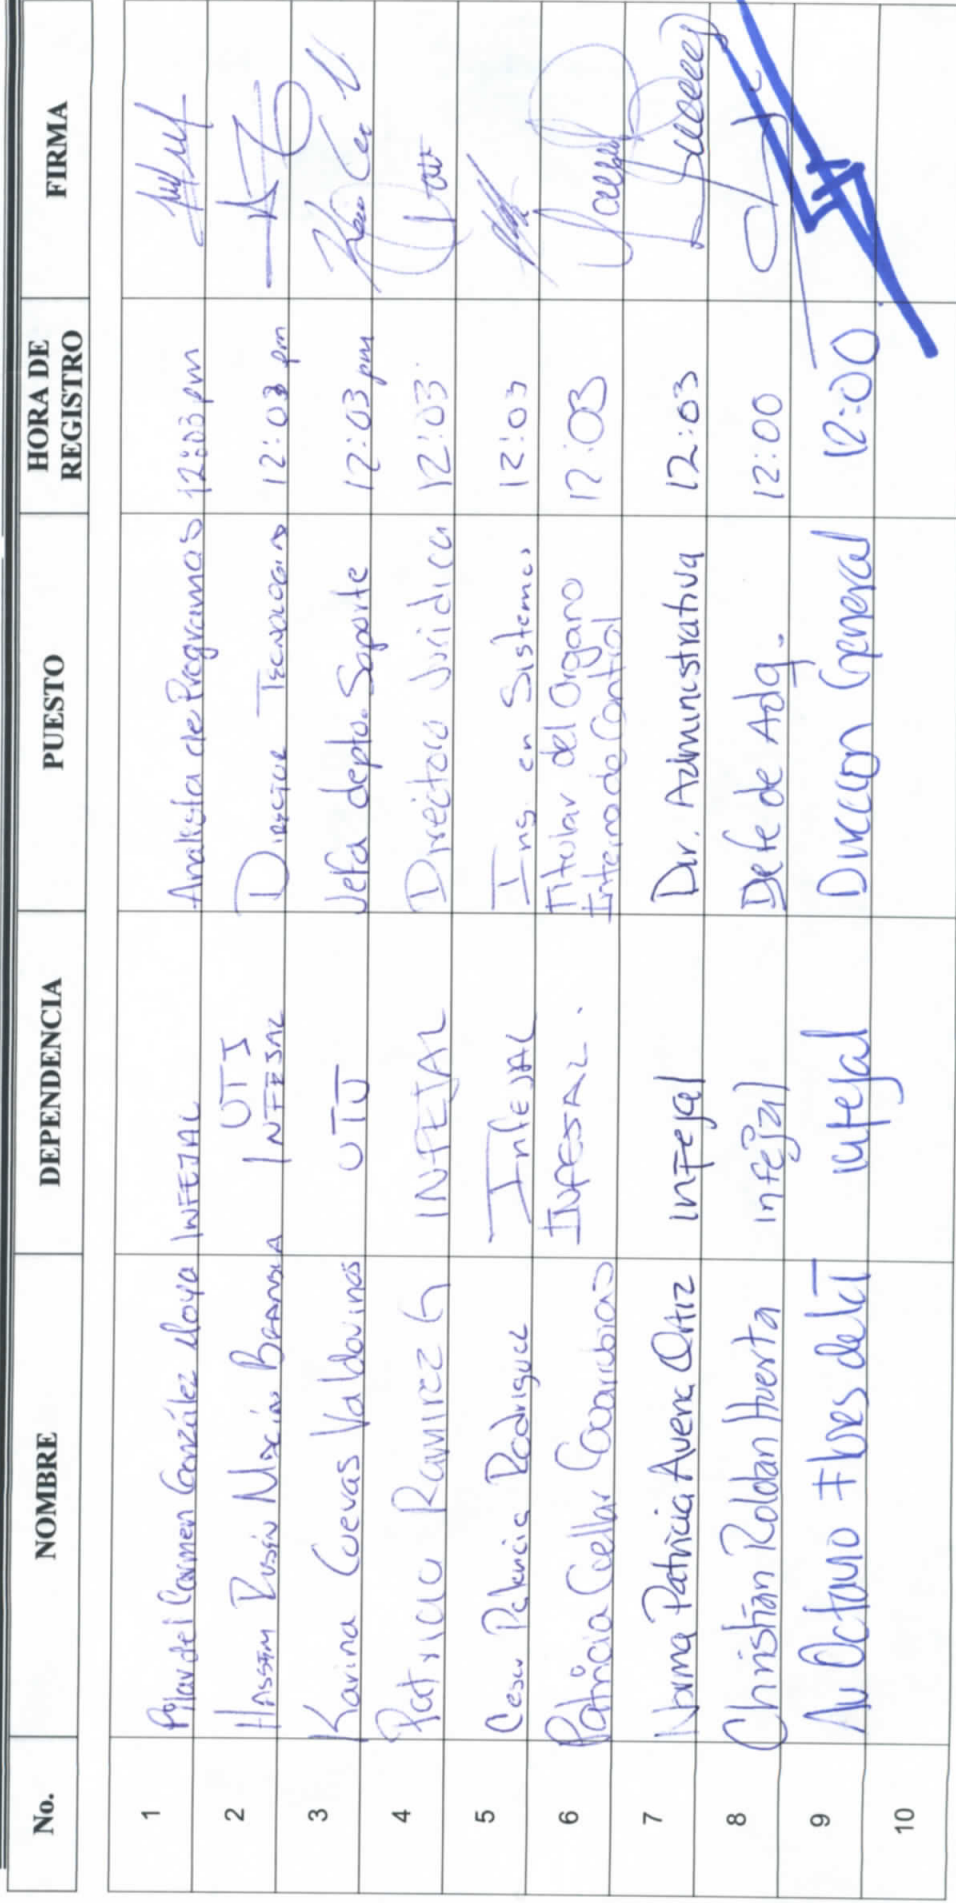 No. NOMBRE DEPENDENCIA PUESTO HORA DE REGISTRO FIRMA
1 Pilar del Carmen González Moya INFEJAL Analista de Programas 12:03 pm
2 Hassem Rubén Macías UTI INFEJAL Director Tecnologías 12:03 pm
3 Karina Cuevas Valdovinos UTI Jefa depto. Soporte 12:03 pm
4 Ramírez G INFEJAL Directora Jurídica 12:03
5 Cesar Palencia Rodriguez Infejal Ing. en Sistemas 12:03
6 Patricia INFEJAL. Titular del Organo Interno de Control 12:03
7 Norma Patricia Ortiz Infejal Dir. Administrativa 12:03
8 Christian Roldan Huerta infejal Jefe de Adq. 12:00
9 Octavio Flores de la T infejal Direccion General 12:00
10